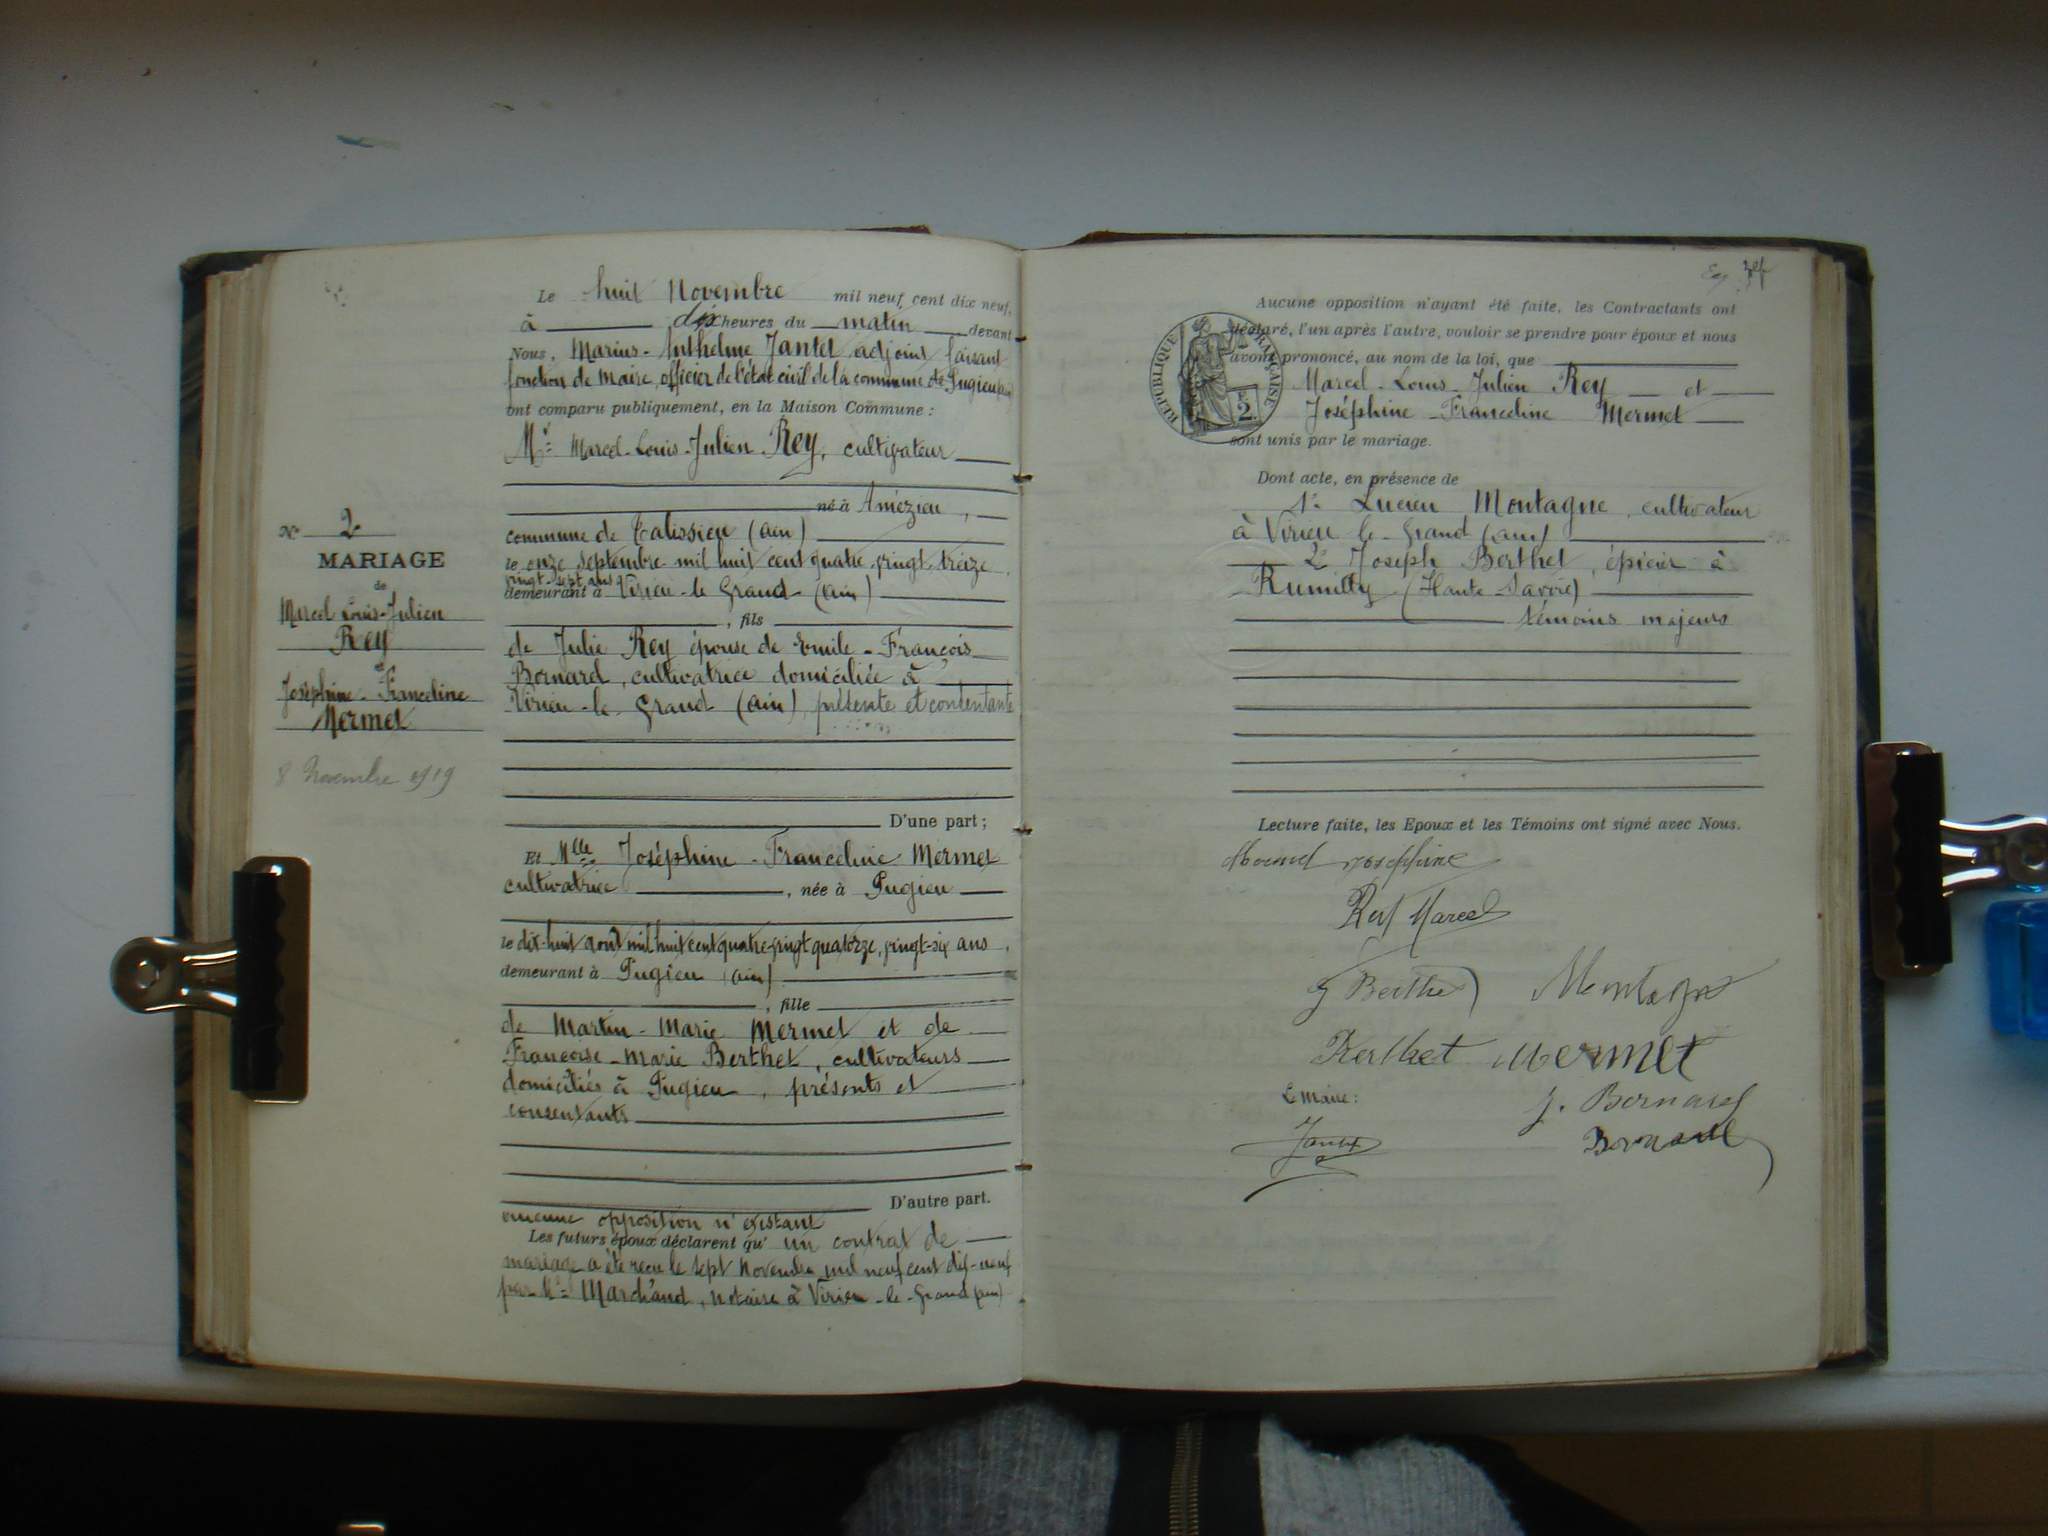 Le huit Novembre mil neuf cent dix neuf,
à dix heures du matin devant
Nous, Marius-Anthelme Jantet adjoint faisant
fonction de Maire, officier de l'état civil de la commune de Pugieu (ain)
ont comparu publiquement, en la Maison Commune :
Mr Marcel-Louis-Julien Rey, cultivateur
né à Amézieu,
commune de Talissieu (ain)
le onze septembre mil huit cent quatre-vingt-treize,
vingt-sept ans
demeurant à Virieu-le Grand (ain)
, fils
de Julie Rey épouse de Emile-François
Bornard, cultivatrice domiciliée à
Virieu-le-Grand (ain), présente et consentante
D'une part ;
Et Mlle Joséphine-Franceline Mermet
cultivatrice, née à Pugieu
le dix-huit août mil huit cent quatre-vingt quatorze, vingt-six ans,
demeurant à Pugieu (ain)
, fille
de Martin-Marie Mermet et de
Françoise-Marie Berthet, cultivateurs
domiciliés à Pugieu, présents et
consentants
D'autre part.
aucune opposition n'existant
Les futurs époux déclarent qu' un contrat de
mariage a été reçu le sept Novembre mil neuf cent dix-neuf
par Me Marchand, notaire à Virieu-le-Grand (ain)
No 2
MARIAGE
de
Marcel Louis-Julien
Rey
et
Joséphine-Franceline
Mermet
8 Novembre 1919
Aucune opposition n'ayant été faite, les Contractants ont
déclaré, l'un après l'autre, vouloir se prendre pour époux et nous
avons prononcé, au nom de la loi, que
Marcel-Louis-Julien Rey et
Joséphine-Franceline Mermet
sont unis par le mariage.
RÉPUBLIQUE FRANÇAISE
2
Dont acte, en présence de
1° Lucien Montagne, cultivateur
à Virieu-le-Grand (ain)
2° Joseph Berthet, épicier à
Rumilly (Haute-Savoie)
témoins majeurs
Lecture faite, les Epoux et les Témoins ont signé avec Nous.
Josephine
Rey Marcel
J Berthet Montagne
Berthet Mermet
Le Maire : J. Bornard
Jantet Bornard